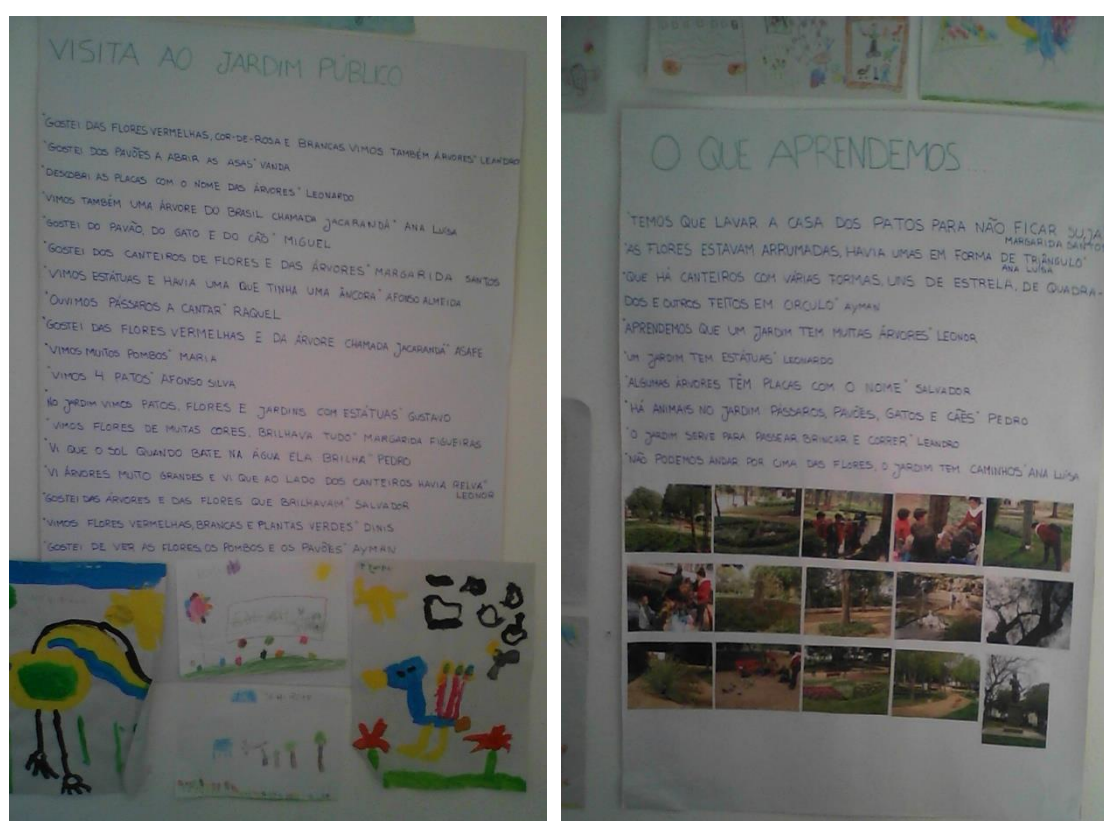 VISITA AO JARDIM PÚBLICO
"GOSTEI DAS FLORES VERMELHAS, COR-DE-ROSA E BRANCAS. VIMOS TAMBÉM ÁRVORES" LEANDRO
"GOSTEI DOS PAVÕES A ABRIR AS ASAS" VANDA
"DESCOBRI AS PLACAS COM O NOME DAS ÁRVORES" LEONARDO
"VIMOS TAMBÉM UMA ÁRVORE DO BRASIL CHAMADA JACARANDÁ" ANA LUÍSA
"GOSTEI DO PAVÃO, DO GATO E DO CÃO" MIGUEL
"GOSTEI DOS CANTEIROS DE FLORES E DAS ÁRVORES" MARGARIDA SANTOS
"VIMOS ESTÁTUAS E HAVIA UMA QUE TINHA UMA ÂNCORA" AFONSO ALMEIDA
"OUVIMOS PÁSSAROS A CANTAR" RAQUEL
"GOSTEI DAS FLORES VERMELHAS E DA ÁRVORE CHAMADA JACARANDÁ" ASAFE
"VIMOS MUITOS POMBOS" MARIA
"VIMOS 4 PATOS" AFONSO SILVA
"NO JARDIM VIMOS PATOS, FLORES E JARDINS COM ESTÁTUAS" GUSTAVO
"VIMOS FLORES DE MUITAS CORES, BRILHAVA TUDO" MARGARIDA FIGUEIRAS
"VI QUE O SOL QUANDO BATE NA ÁGUA ELA BRILHA" PEDRO
"VI ÁRVORES MUITO GRANDES E VI QUE AO LADO DOS CANTEIROS HAVIA RELVA"
LEONOR
"GOSTEI DAS ÁRVORES E DAS FLORES QUE BRILHAVAM" SALVADOR
"VIMOS FLORES VERMELHAS, BRANCAS E PLANTAS VERDES" DINIS
"GOSTEI DE VER AS FLORES, OS POMBOS E OS PAVÕES" AYMAN
O QUE APRENDEMOS...
"TEMOS QUE LAVAR A CASA DOS PATOS PARA NÃO FICAR SUJA"
MARGARIDA SANTOS
"AS FLORES ESTAVAM ARRUMADAS, HAVIA UMAS EM FORMA DE TRIÂNGULO"
ANA LUÍSA
"QUE HÁ CANTEIROS COM VÁRIAS FORMAS, UNS DE ESTRELA, DE QUADRA-
DOS E OUTROS FEITOS EM CIRCULO" AYMAN
"APRENDEMOS QUE UM JARDIM TEM MUITAS ÁRVORES" LEONOR
"UM JARDIM TEM ESTÁTUAS" LEONARDO
"ALGUMAS ÁRVORES TÊM PLACAS COM O NOME" SALVADOR
"HÁ ANIMAIS NO JARDIM: PÁSSAROS, PAVÕES, GATOS E CÃES" PEDRO
"O JARDIM SERVE PARA PASSEAR BRINCAR E CORRER" LEANDRO
"NÃO PODEMOS ANDAR POR CIMA DAS FLORES, O JARDIM TEM CAMINHOS" ANA LUÍSA